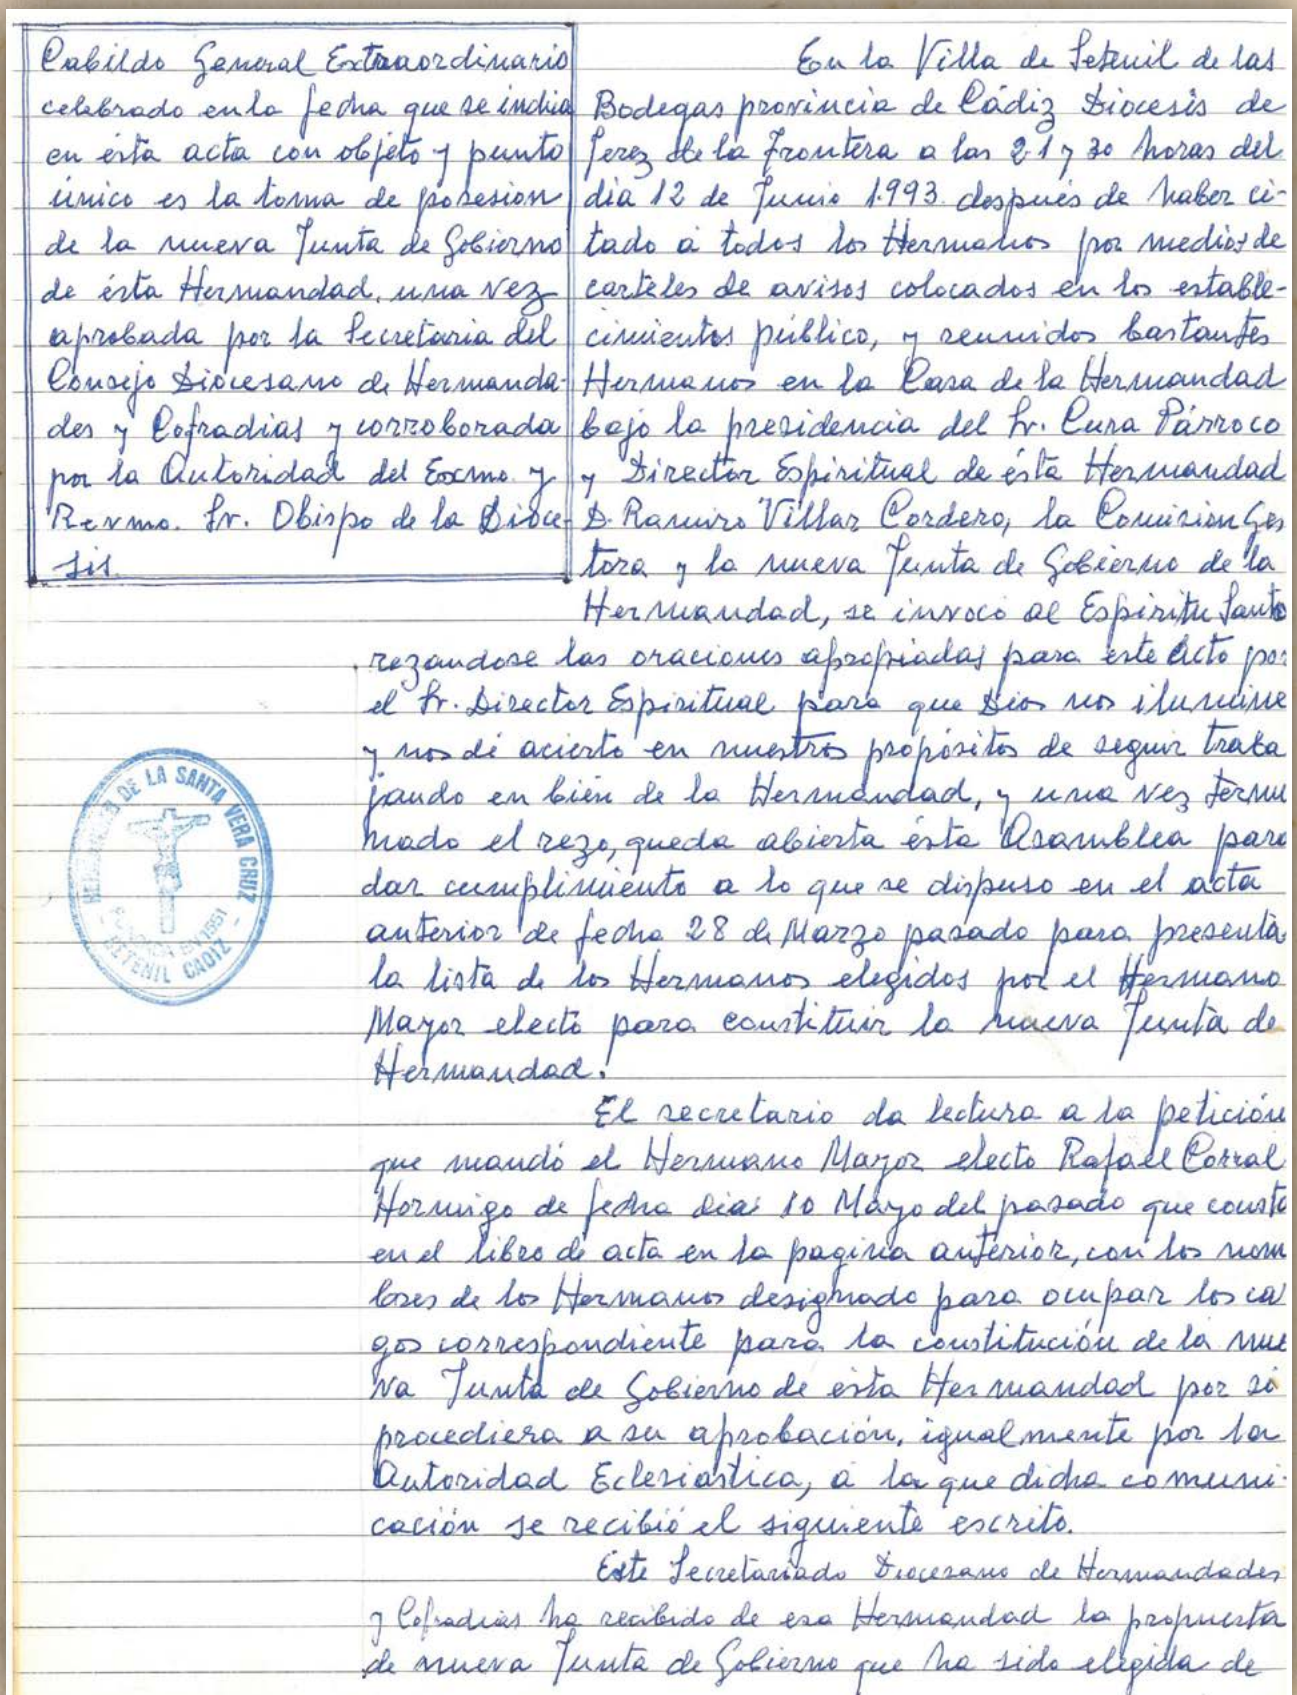 Cabildo General Extraordinario
celebrado en la fecha que se indica
en ésta acta con objeto y punto
único es la toma de posesion
de la nueva Junta de Gobierno
de ésta Hermandad, una vez
aprobada por la Secretaria del
Consejo Diocesano de Hermanda-
des y Cofradias y corroborada
por la Autoridad del Excmo. y
Revmo. Sr. Obispo de la Dioce-
sis.
En la Villa de Setenil de las
Bodegas provincia de Cádiz Diocesis de
Jerez de la Frontera a las 21 y 30 horas del
dia 12 de Junio 1.993. después de haber ci-
tado a todos los Hermanos por medios de
carteles de avisos colocados en los estable-
cimientos público, y reunidos bastantes
Hermanos en la Casa de la Hermandad
bajo la presidencia del Sr. Cura Párroco
y Director Espiritual de ésta Hermandad
D. Ramiro Villar Cordero, la Comision Ges
tora y la nueva Junta de Gobierno de la
Hermandad, se invocó al Espíritu Santo
rezandose las oraciones apropiadas para este Acto por
el Sr. Director Espiritual para que Dios nos ilumine
y nos dé acierto en nuestros propósitos de seguir traba
jando en bién de la Hermandad, y una vez termi
nado el rezo, queda abierta ésta Asamblea para
dar cumplimiento a lo que se dispuso en el acta
anterior de fecha 28 de Marzo pasado para presenta
la lista de los Hermanos elegidos por el Hermano
Mayor electo para constituir la nueva Junta de
Hermandad.
HERMANDAD DE LA SANTA VERA CRUZ
FUNDADA EN 1551
- SETENIL CADIZ -
El secretario da lectura a la petición
que mandó el Hermano Mayor electo Rafael Corral
Hormigo de fecha dia 10 Mayo del pasado que consta
en el libro de acta en la pagina anterior, con los nom
bres de los Hermanos designado para ocupar los ca
gos correspondiente para la constitución de la nue
va Junta de Gobierno de ésta Hermandad por si
procediera a su aprobación, igualmente por la
Autoridad Eclesiástica, a la que dicha comuni-
cación se recibió el siguiente escrito.
Este Secretariado Diocesano de Hermandades
y Cofradias ha recibido de esa Hermandad la propuesta
de nueva Junta de Gobierno que ha sido elegida de